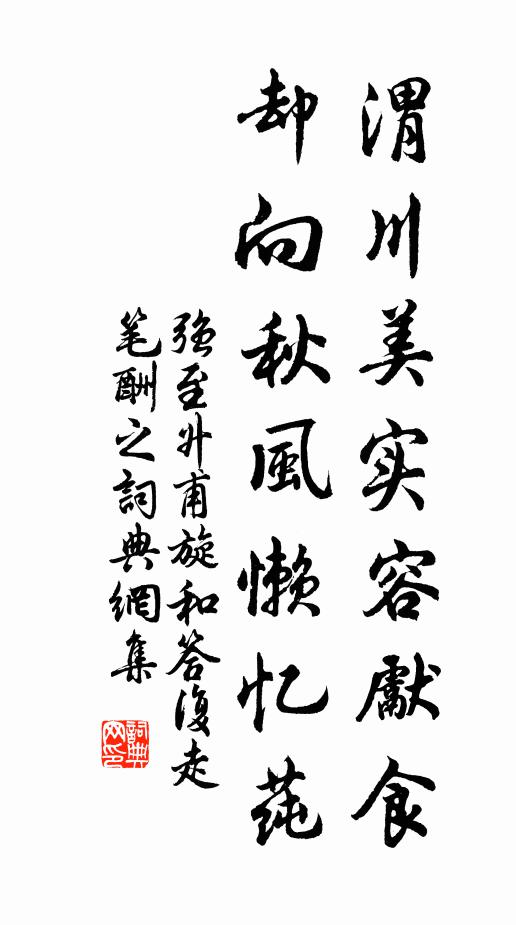 渭川美实容獻食
却向秋風懒忆莼
強至升甫旋和答復走
笔酬之詞典網集
詞典網印